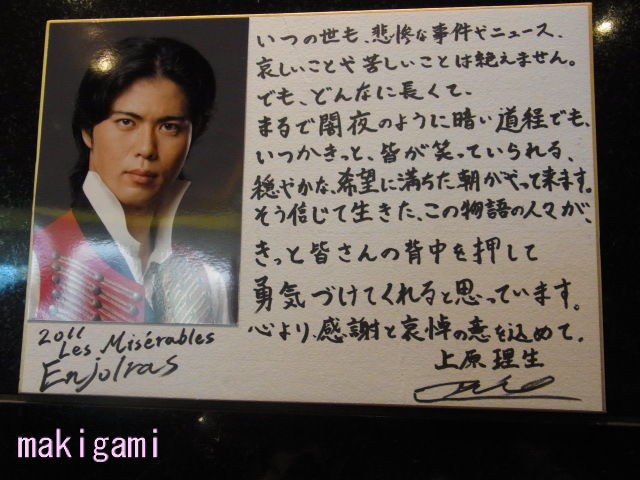 いつの世も、悲惨な事件やニュース、
哀しいことや苦しいことは絶えません。
でも、どんなに長くて、
まるで闇夜のように暗い道程でも、
いつかきっと、皆が笑っていられる、
穏やかな、希望に満ちた朝がやって来ます。
そう信じて生きた、この物語の人々が、
きっと皆さんの背中を押して
勇気づけてくれると思っています。
心より、感謝と哀悼の意を込めて。
上原理生
2011
Les Misérables
Enjolras
makigami